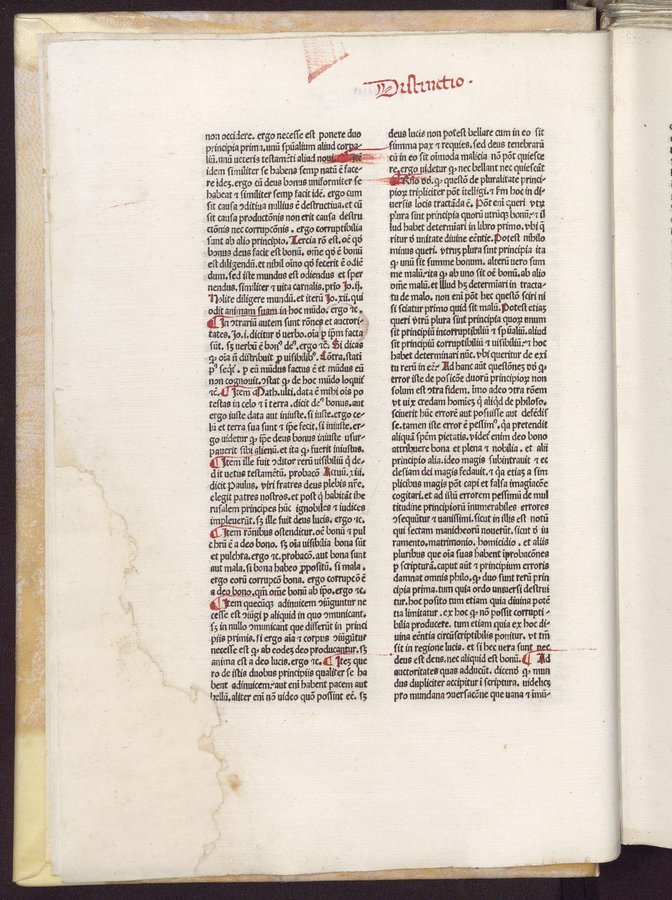 Distinctio.
non occidere. ergo necesse est ponere duo
principia prima, unū spūalium aliud corpa-
liū. unū ueteris testamēti aliud noui. Itē
idem similiter se habens semp natū ē face-
re idez. ergo cū deus bonus uniformiter se
habeat ⁊ similiter semp facit idē. ergo cum
sit causa ꝯditiua nullius ē destructiua. et cū
sit causa productōnis non erit causa destru
ctōnis nec corrupcōnis. ergo corruptibilia
sunt ab alio principio. Tercia rō est. oē qđ
bonus deus facit est bonū. omē qđ ē bonū
est diligendū. et nihil oīno qđ fecerit ē odiē
dum. sed iste mundus est odiendus et sper
nendus. similiter ⁊ uita carnalis. prīo Jo. ij.
Nolite diligere mundū. et iterū Jo. xij. qui
odit animam suam in hoc mūdo. ergo ⁊c.
In ꝯtrariū autem sunt rōnes et auctori-
tates. Jo. i. dicitur đ uerbo. oīa ꝑ ipm̄ facta
sūt. sꝫ uerbū ē bonꝰ deꝰ. ergo ⁊c. Si dicas
ꝙ oīa ñ distribuit ꝓ uisibilibꝰ. Cōtra. stati
ꝑ eū mūdus factus ē et mūdus eū
non cognouit. ꝯstat ꝙ de hoc mūdo loquit
⁊c. Item Math. ulti. data ē mihi oīs po
testas in celo ⁊ ī terra. dicit deꝰ bonus. aut
ergo iuste data aut iniuste. si iuste. ergo ce-
lū et terra sua sunt ⁊ ipē fecit. si iniuste. er-
go uidetur ꝙ ipē deus bonus iniuste usur-
pauerit sibi alienū. et ita ꝙ fuerit iniustus.
Item ille fuit ꝯditor rerū uisibiliū q̄ de-
dit uetus testamētū. probacō Actuū. xiij.
dicit Paulus. uiri fratres deus plebis nr̄e.
elegit patres nostros. et post ꝙ habitāt ihe
rusalem principes huꝰ ignobiles ⁊ iudices
impleuerūt. sꝫ ille fuit deus lucis. ergo ⁊c.
Item rōnibus ostenditur. oē bonū ⁊ pul
chrū ē a deo bono. sꝫ oīa uisibilia bona sūt
et pulchra. ergo ⁊c. probacō. aut bona sunt
aut mala. si bona habeo ꝓpositū. si mala.
ergo eorū corrupcō bona. ergo corrupcō ē
a deo bono. qm̄ omē bonū ab ipo. ergo ⁊c.
Item quecūqꝫ adinuicem ꝯiūguntur ne
cesse est ꝯiūgi ꝑ aliquid in quo ꝯmunicant.
sꝫ in nullo ꝯmunicant que disserūt in princi
piis primis. si ergo aīa ⁊ corpus ꝯiūgūtur
necesse est ꝙ ab eodez deo producantur. sꝫ
anima est a deo lucis. ergo ⁊c. Itez que
ro de istis duobus principiis qualiter se ha
bent adinuicem. aut enī habent pacem aut
bellū. aliter enī nō video quō possint eē. sꝫ
deus lucis non potest bellare cum in eo sit
summa pax ⁊ requies. sed deus tenebrarū
cū in eo sit oīmoda malicia nō pōt quiesce
re. ergo uidetur ꝙ nec bellant nec quiescāt
Rñō đđ. ꝙ questō de pluralitate princi-
piorꝫ tripliciter pōt itelligi. ⁊ fm hoc in di
uersis locis tractāda ē. Pōt enī queri utꝝ
plura sint principia quorū utrūqꝫ bonū. ⁊ il
lud habet determinari in libro primo. vbi q̄
ritur đ unitate diuine eēntie. Potest nihilo
minus queri. utruꝫ plura sint principia ita
ꝙ unū sit summe bonum. alterū uero sum
me malū. ita ꝙ ab uno sit oē bonū. ab alio
omē malū. et illud hꝫ determinari in tracta-
tu de malo. non enī pōt hec questō sciri ni
si sciatur primo quid sit malū. Potest etiaꝫ
queri vtrū plura sint principia quoꝝ unum
sit principiū incorruptibiliū ⁊ spūaliū. aliud
sit principiū corruptibiliū ⁊ uisibiliū. ⁊ hoc
habet determinari nūc. vbi queritur de exi
tu rerū in eē. Ad hanc aūt questōnez đđ ꝙ
error iste de posicōe duorū principioꝝ non
solum est ꝯtra fidem. imo adeo ꝯtra rōem
vt uix credam homiez ꝙ aliqđ de philoso.
sciuerit hūc errorē aut posuisse aut defēdis
se. tamen iste error ē pessimꝰ. qꝛ pretendit
aliquā spēm pietatis. videtꝰ enim deo bono
attribuere bona et plena ⁊ nobilia. et alii
principio alia. ideo magis subintrauit ⁊ ec
clesiam dei magis fedauit. ⁊ qꝛ etiaꝫ a sim
plicibus magis pōt capi et falsa imagiacōe
cogitari. et ad istū errorem pessimū de mul
titudine principiorū inumerabiles errores
ꝯsequūtur ⁊ uanissimi. sicut in illis est notū
qui sectam manicheorū nouerūt. sicut đ iu
ramento. matrimonio. homicidio. et aliis
pluribus que oīa suas habent īprobacōnes
ꝑ scripturā. caput aūt ⁊ principium erroris
damnat omnis philo. ꝙ duo sunt rerū prin
cipia prima. tum quia ordo uniuersi destrui
tur. hoc posito tum etiam quia diuina potē
tia limitatur. ex hoc ꝙ nō possit corrupti-
bilia producere. tum etiam quia ex hoc di-
uina eēntia circūscriptibilis ponitur. vt tm̄
sit in regione lucis. et si hec uera sunt nec
deus est deus. nec aliquid est bonū. Ad
auctoritates quas adducūt. dicenđ ꝙ mun
dus dupliciter accipitur ī scriptura. videlicꝫ
pro mundana ꝯuersacōne que uana ⁊ īmū-